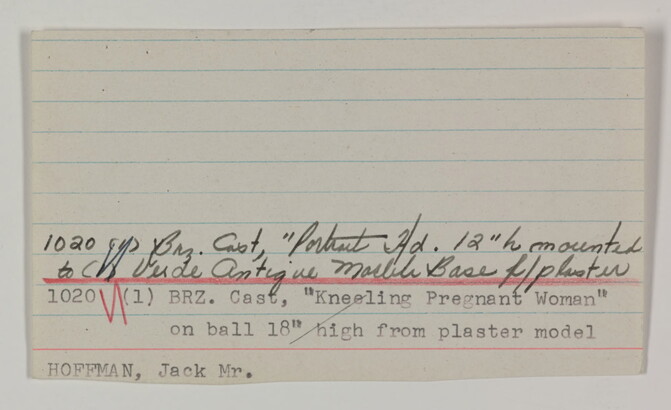 1020 (1) Brz. Cast, "Portrait Hd. 12" h mounted
to (1) Verde Antique Marble Base f/plaster
1020 (1) BRZ. Cast, "Kneeling Pregnant Woman"
on ball 18" high from plaster model
HOFFMAN, Jack Mr.